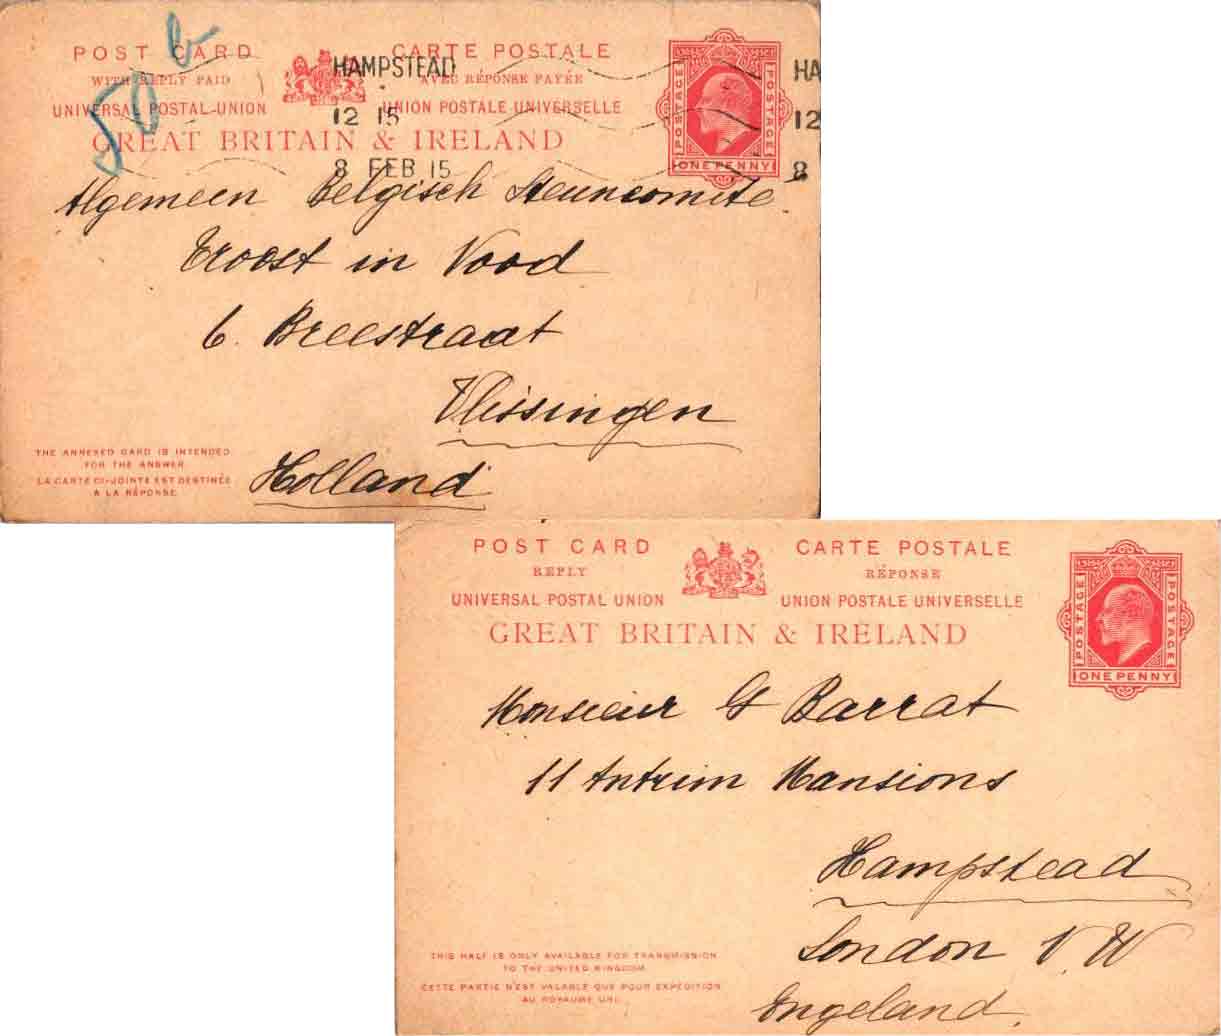 POST CARD
WITH REPLY PAID
UNIVERSAL POSTAL-UNION
CARTE POSTALE
AVEC RÉPONSE PAYÉE
UNION POSTALE UNIVERSELLE
GREAT BRITAIN & IRELAND
POSTAGE
POSTAGE
ONE PENNY
HAMPSTEAD
12 15
8 FEB 15
HA
12
8
50 b
Algemeen Belgisch Steuncomite
Troost in Nood
6. Breestraat
Vlissingen
Holland
THE ANNEXED CARD IS INTENDED
FOR THE ANSWER
LA CARTE CI-JOINTE EST DESTINÉE
A LA RÉPONSE
POST CARD
REPLY
UNIVERSAL POSTAL UNION
CARTE POSTALE
RÉPONSE
UNION POSTALE UNIVERSELLE
GREAT BRITAIN & IRELAND
POSTAGE
POSTAGE
ONE PENNY
Monsieur G Barrat
11 Antrim Mansions
Hampstead
London N.W
Engeland.
THIS HALF IS ONLY AVAILABLE FOR TRANSMISSION
TO THE UNITED KINGDOM.
CETTE PARTIE N'EST VALABLE QUE POUR EXPÉDITION
AU ROYAUME UNI.